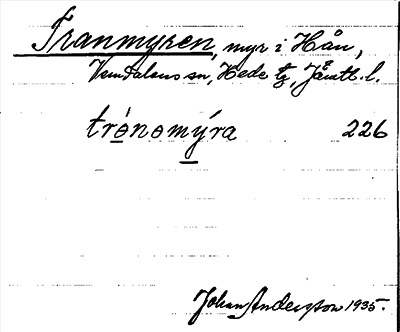 Tranmyren, myr i Hån,
Vemdalens sn, Hede tg, Jämtl. l.
trónomýra 226
Johan Andersson 1935.